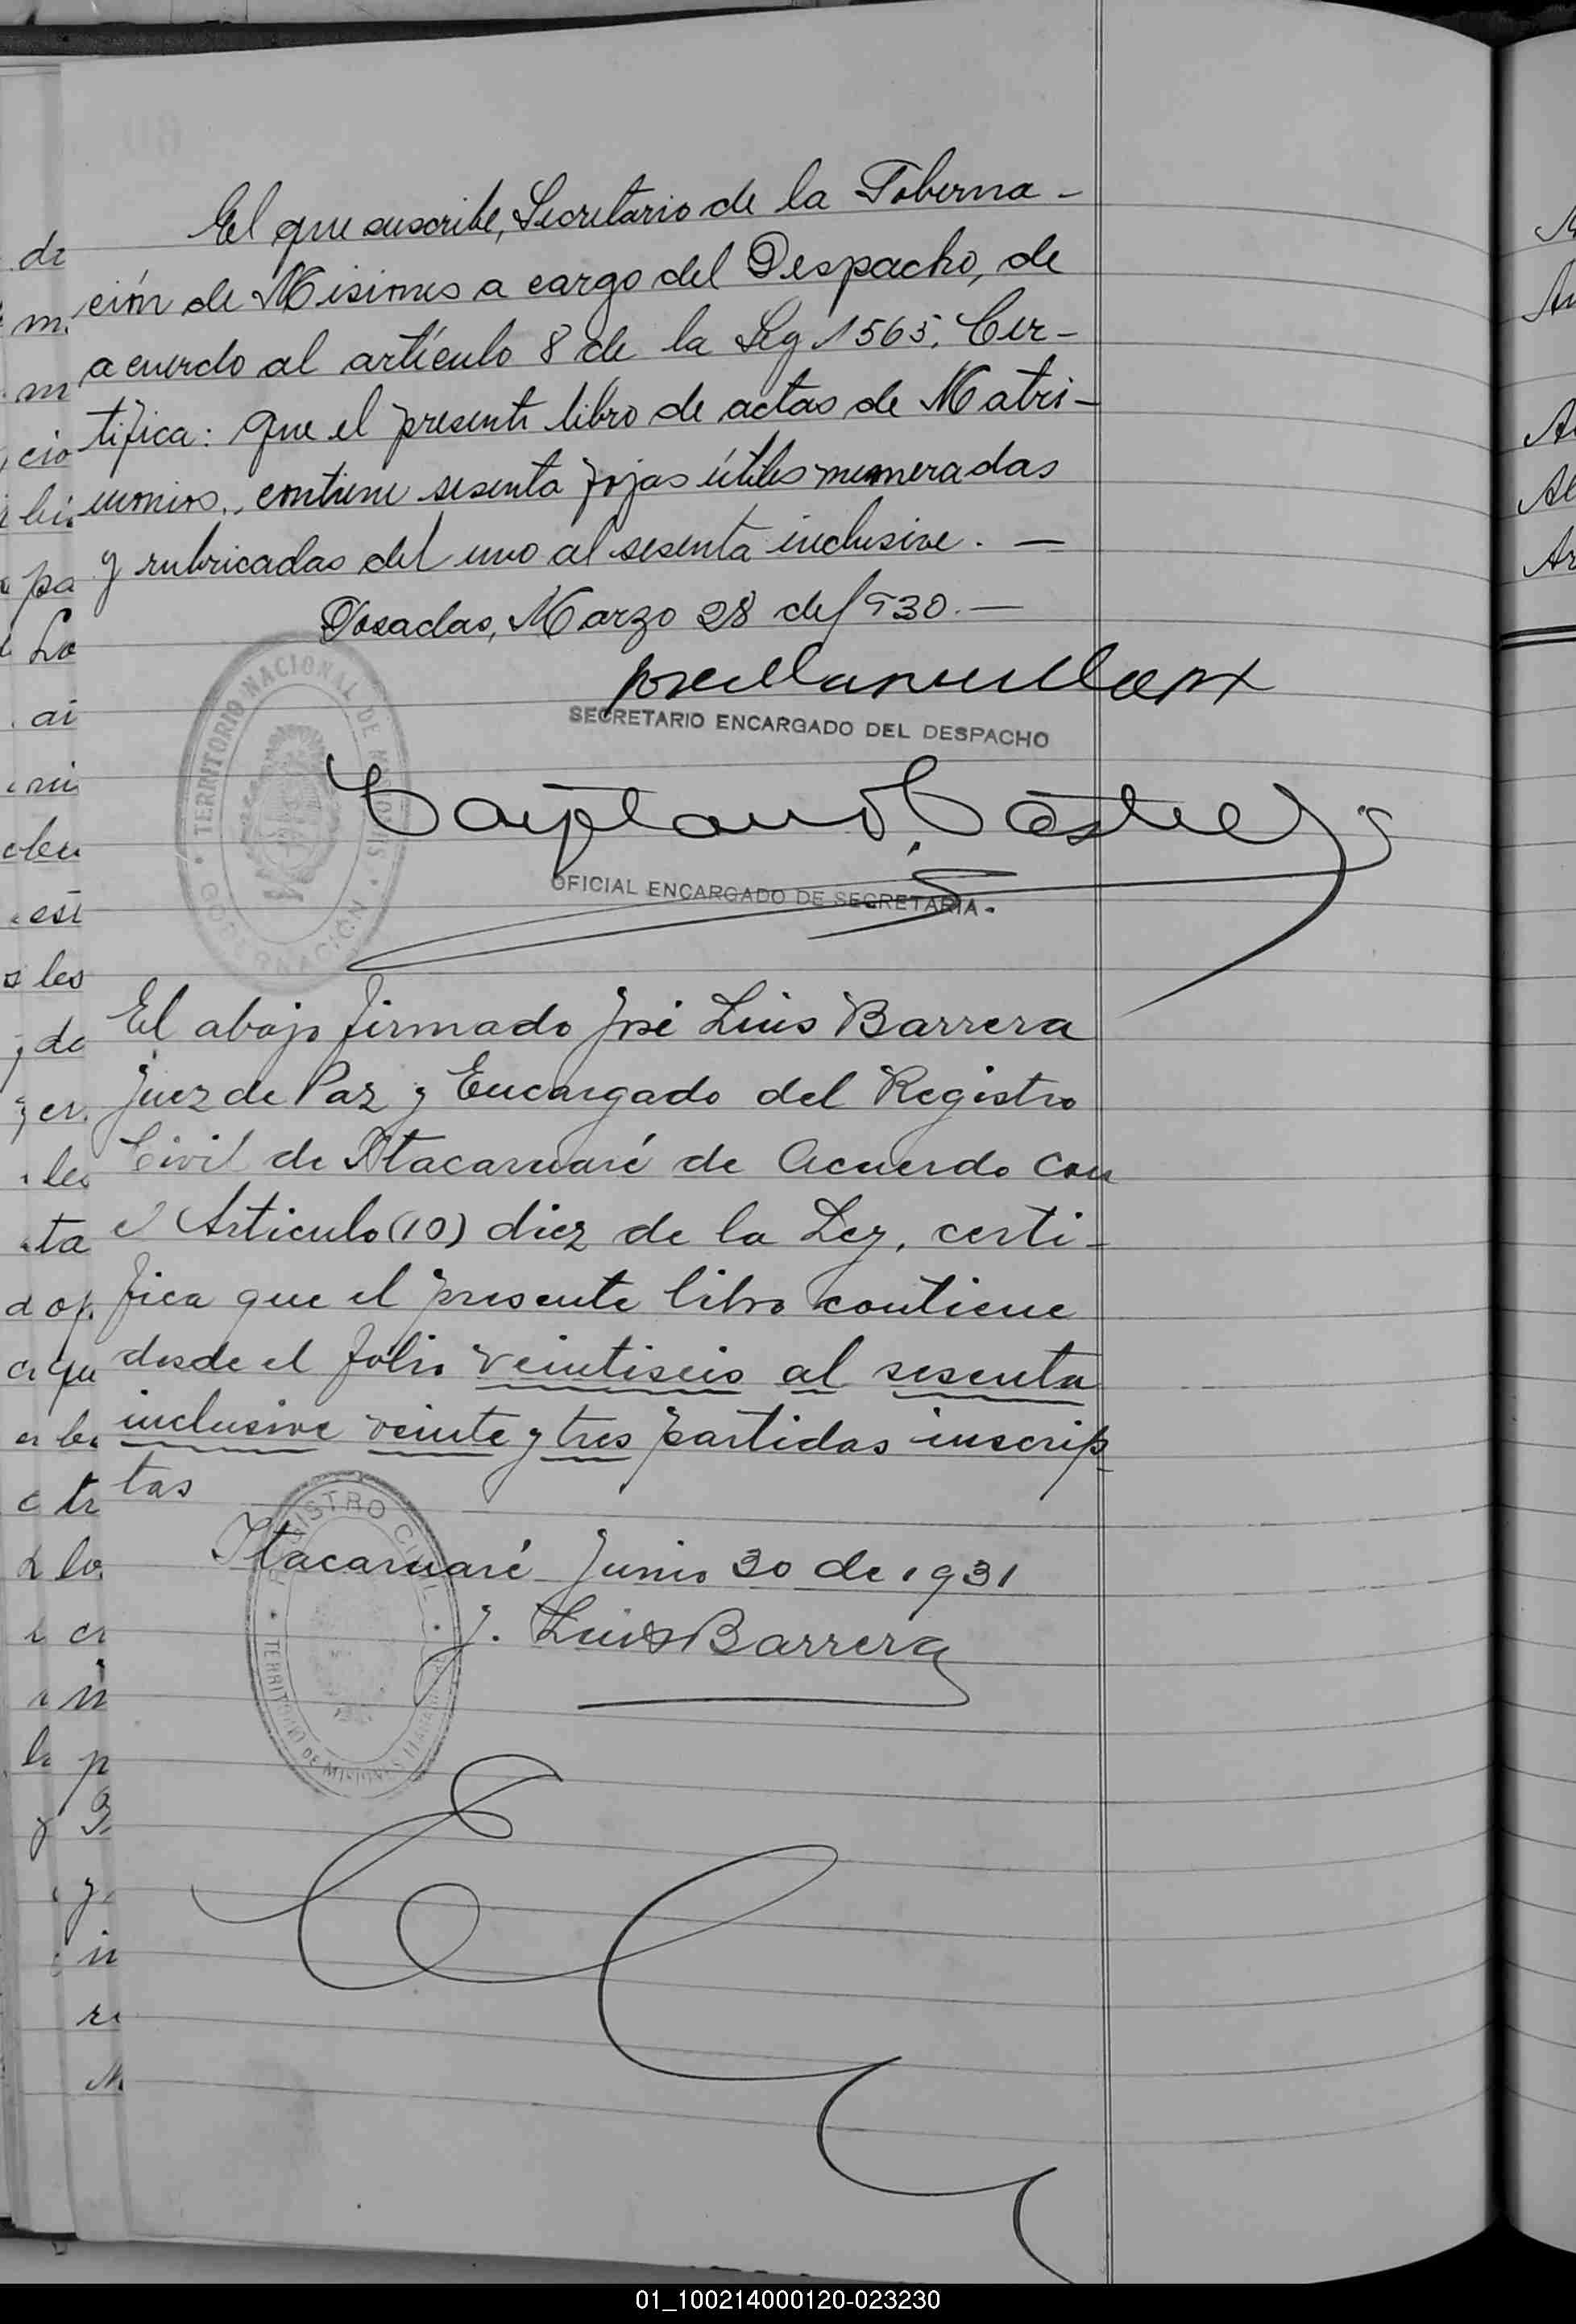 El que suscribe, Secretario de la Goberna-
ción de Misiones a cargo del Despacho, de
acuerdo al artículo 8 de la Ley 1565, Cer-
tifica: Que el presente libro de actas de Matri-
monios, contiene sesenta fojas útiles numeradas
y rubricadas del uno al sesenta inclusive. —
Posadas, Marzo 28 de 1930. —
SECRETARIO ENCARGADO DEL DESPACHO
TERRITORIO NACIONAL DE MISIONES
GOBERNACIÓN
OFICIAL ENCARGADO DE SECRETARIA.
El abajo firmado José Luis Barrera
Juez de Paz y Encargado del Registro
Civil de Itacaruaré de Acuerdo con
el Articulo (10) diez de la Ley, certi-
fica que el presente libro contiene
desde el folio veintiseis al sesenta
inclusive veinte y tres partidas inscrip-
tas
Itacaruaré Junio 30 de 1931
J. Luis Barrera
REGISTRO CIVIL
TERRITORIO DE MISIONES
01_100214000120-023230